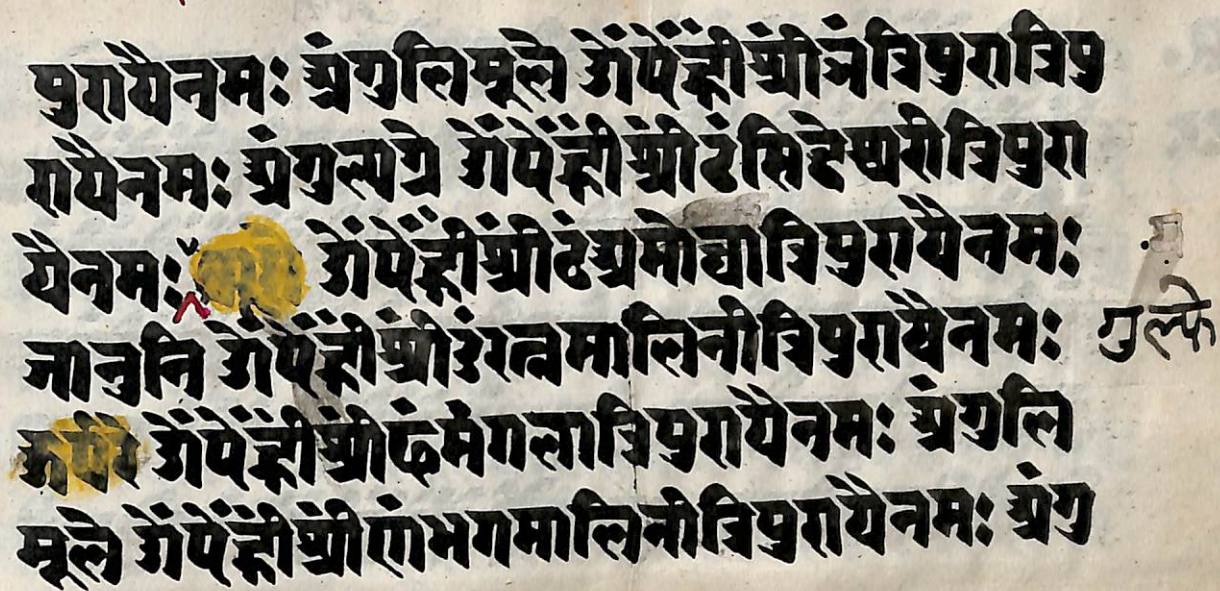 पुरायैनमः अंगुलिमूले ओंऐंह्रींश्रींञंत्रिपुरात्रिपु
रायैनमः अंगुल्यग्रे ओंऐंह्रींश्रींटंसिद्देश्वरीत्रिपुरा
यैनमः ओंऐंह्रींश्रींठंअमोघात्रिपुरायैनमः
जानुनि ओंऐंह्रींश्रींडंरत्नमालिनीत्रिपुरायैनमः गुल्फे
ओंऐंह्रींश्रींढंमंगलात्रिपुरायैनमः अंगुलि
मूले ओंऐंह्रींश्रींणंभगमालिनीत्रिपुरायैनमः अंगु